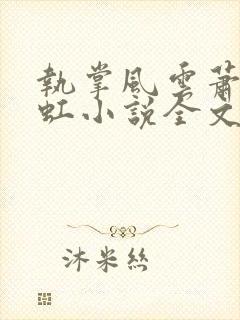 執掌風雲蕭
虹小說全文
沐米絲